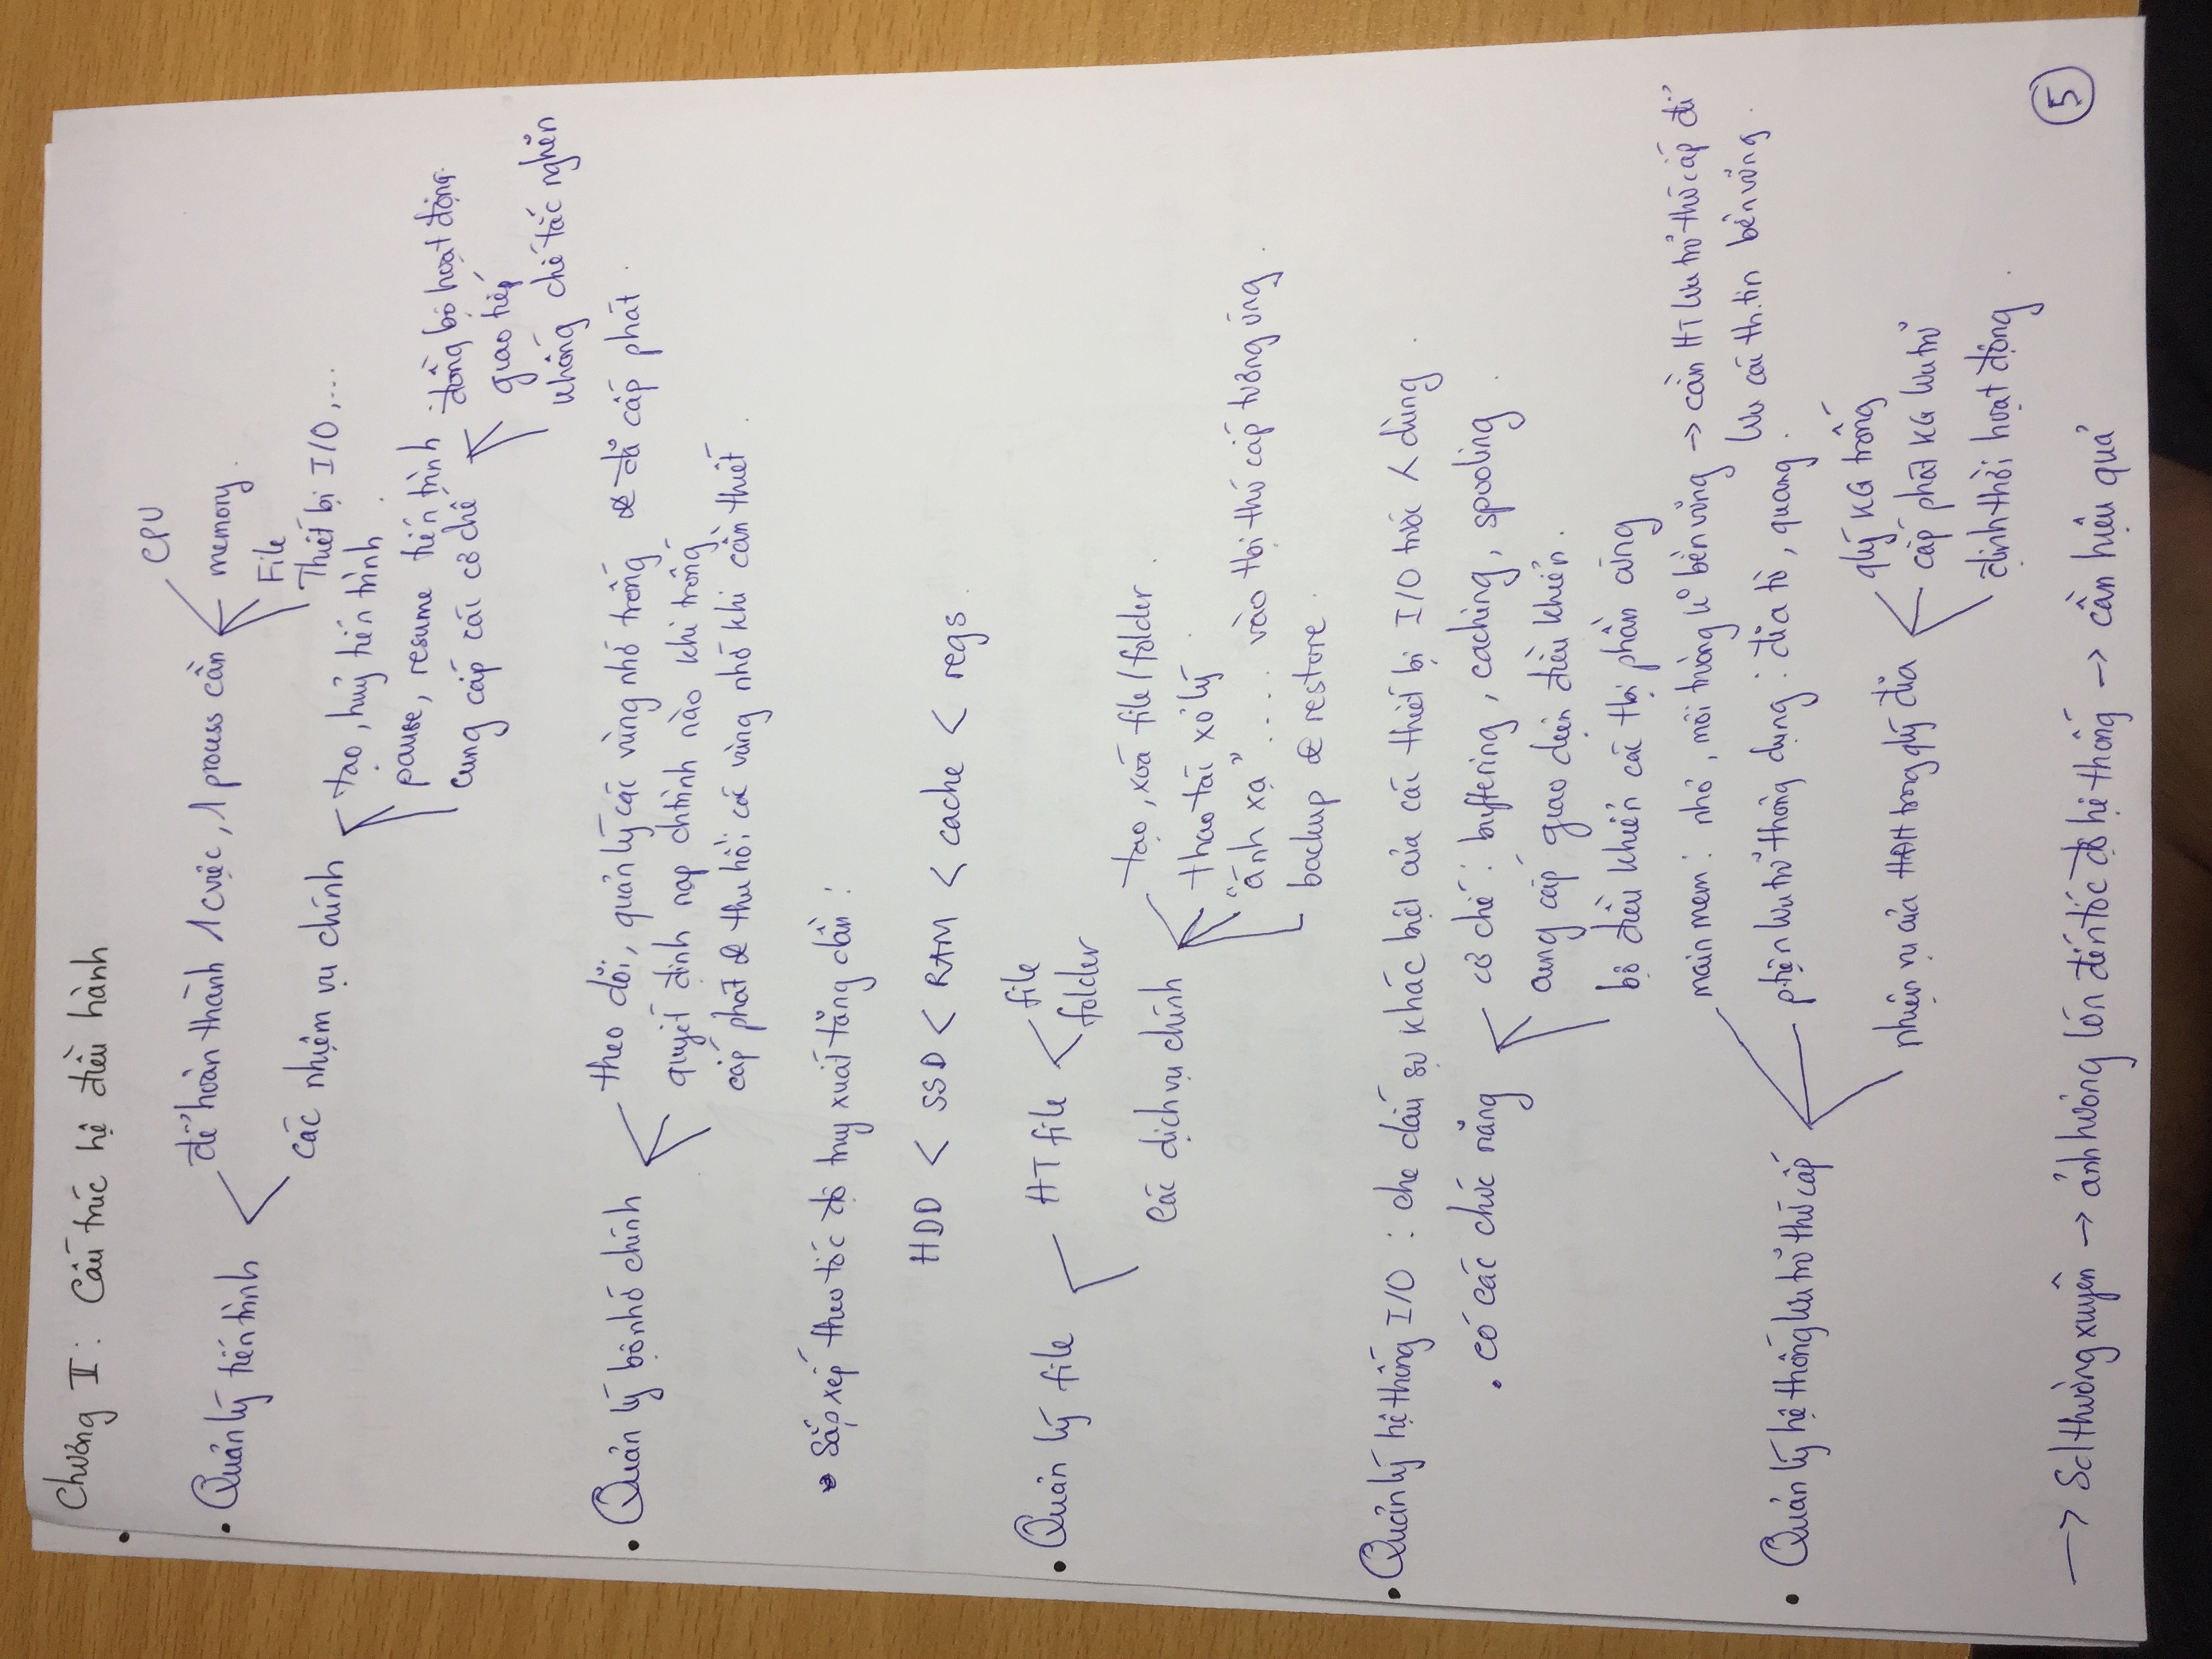 Chương II : Cấu trúc hệ điều hành
• Quản lý tiến trình
để hoàn thành 1 cviệc, 1 process cần
CPU
memory.
File
Thiết bị I/O, ...
các nhiệm vụ chính
tạo, huỷ tiến trình.
pause, resume tiến trình
cung cấp các cơ chế
đồng bộ hoạt động.
giao tiếp
khống chế tắc nghẽn
• Quản lý bộ nhớ chính
theo dõi, quản lý các vùng nhớ trống & đã cấp phát.
quyết định nạp chtrình nào khi trống
cấp phát & thu hồi các vùng nhớ khi cần thiết.
Sắp xếp theo tốc độ truy xuất tăng dần :
HDD < SSD < RAM < cache < regs.
• Quản lý file
HT file
file
folder
các dịch vụ chính
tạo, xoá file/folder.
thao tác xử lý.
"ánh xạ" .... vào tbị thứ cấp tương ứng.
backup & restore.
• Quản lý hệ thống I/O : che dấu sự khác biệt của các thiết bị I/O trước < dùng.
. có các chức năng
cơ chế : buffering, caching, spooling.
cung cấp giao diện điều khiển.
bộ điều khiển các tbị phần cứng
• Quản lý hệ thống lưu trữ thứ cấp
main mem : nhỏ, môi trường k° bền vững → cần HT lưu trữ thứ cấp để
lưu các th.tin bền vững.
ptiện lưu trữ thông dụng : đĩa từ, quang.
nhiệm vụ của HĐH trong qlý đĩa
qlý KG trống
cấp phát KG lưu trữ
định thời hoạt động.
→ Sd thường xuyên → ảnh hưởng lớn đến tốc độ hệ thống → cần hiệu quả
5